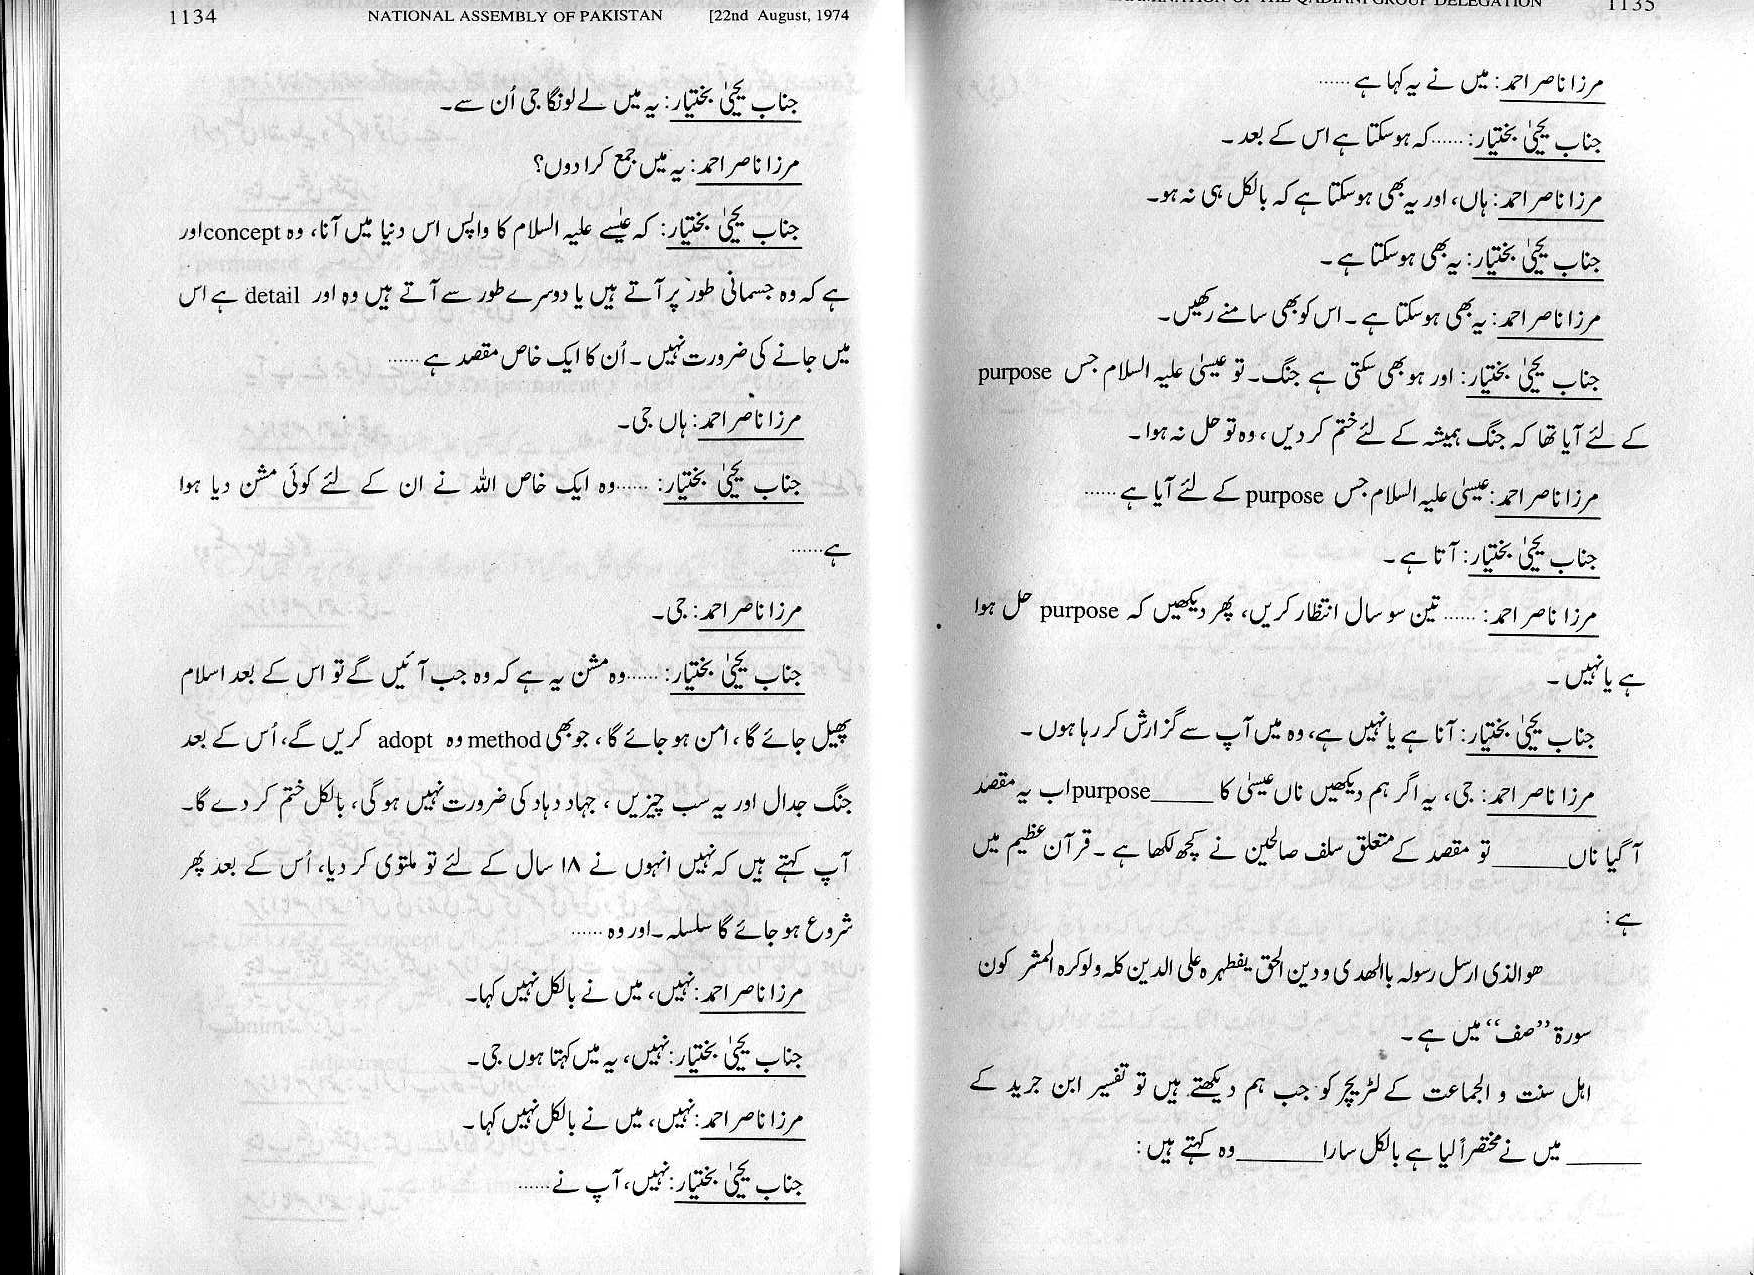 1134 NATIONAL ASSEMBLY OF PAKISTAN [22nd August, 1974
جناب یحییٰ بختیار: یہ میں لے لونگا جی اُن سے۔
مرزا ناصر احمد: یہ میں جمع کرا دوں؟
جناب یحییٰ بختیار: کہ عیسٰے علیہ السلام کا واپس اس دنیا میں آنا، وہ concept اور
ہے کہ وہ جسمانی طور پر آتے ہیں یا دوسرے طور سے آتے ہیں وہ اور detail ہے اس
میں جانے کی ضرورت نہیں ۔ اُن کا ایک خاص مقصد ہے ......
مرزا ناصر احمد: ہاں جی۔
جناب یحییٰ بختیار: ......وہ ایک خاص اللہ نے ان کے لئے کوئی مشن دیا ہوا
ہے......
مرزا ناصر احمد: جی۔
جناب یحییٰ بختیار: ......وہ مشن یہ ہے کہ وہ جب آئیں گے تو اس کے بعد اسلام
پھیل جائے گا، امن ہو جائے گا، جو بھی method وہ adopt کریں گے، اُس کے بعد
جنگ جدال اور یہ سب چیزیں ، جہاد دہاد کی ضرورت نہیں ہو گی، بالکل ختم کر دے گا۔
آپ کہتے ہیں کہ نہیں انہوں نے ۱۸ سال کے لئے تو ملتوی کر دیا، اُس کے بعد پھر
شروع ہو جائے گا سلسلہ۔ اور وہ ......
مرزا ناصر احمد: نہیں، میں نے بالکل نہیں کہا۔
جناب یحییٰ بختیار: نہیں، یہ میں کہتا ہوں جی۔
مرزا ناصر احمد: نہیں، میں نے بالکل نہیں کہا۔
جناب یحییٰ بختیار: نہیں، آپ نے ......
EXAMINATION OF THE QADIANI GROUP DELEGATION 1135
مرزا ناصر احمد: میں نے یہ کہا ہے ......
جناب یحییٰ بختیار: ...... کہ ہوسکتا ہے اس کے بعد ۔
مرزا ناصر احمد: ہاں، اور یہ بھی ہوسکتا ہے کہ بالکل ہی نہ ہو۔
جناب یحییٰ بختیار: یہ بھی ہوسکتا ہے ۔
مرزا ناصر احمد: یہ بھی ہوسکتا ہے ۔ اس کو بھی سامنے رکھیں۔
جناب یحییٰ بختیار: اور ہو بھی سکتی ہے جنگ۔ تو عیسیٰ علیہ السلام جس purpose
کے لئے آیا تھا کہ جنگ ہمیشہ کے لئے ختم کر دیں، وہ تو حل نہ ہوا۔
مرزا ناصر احمد: عیسیٰ علیہ السلام جس purpose کے لئے آیا ہے ......
جناب یحییٰ بختیار: آتا ہے ۔
مرزا ناصر احمد: ...... تین سو سال انتظار کریں، پھر دیکھیں کہ purpose حل ہوا
ہے یا نہیں ۔
جناب یحییٰ بختیار: آنا ہے یا نہیں ہے، وہ میں آپ سے گزارش کر رہا ہوں ۔
مرزا ناصر احمد: جی، یہ اگر ہم دیکھیں ناں عیسیٰ کا _____purpose اب یہ مقصد
آ گیا ناں_____ تو مقصد کے متعلق سلف صالحین نے کچھ لکھا ہے ۔ قرآن عظیم میں
ہے :
ھو الذی ارسل رسولہ باالھدی و دین الحق یفطہرہ علی الدین کلہ ولو کرہ المشر کون
سورۃ ’’صف‘‘ میں ہے ۔
اہل سنت و الجماعت کے لٹریچر کو جب ہم دیکھتے ہیں تو تفسیر ابن جرید کے
_____ میں نے مختصراً لیا ہے بالکل سارا_____ وہ کہتے ہیں :